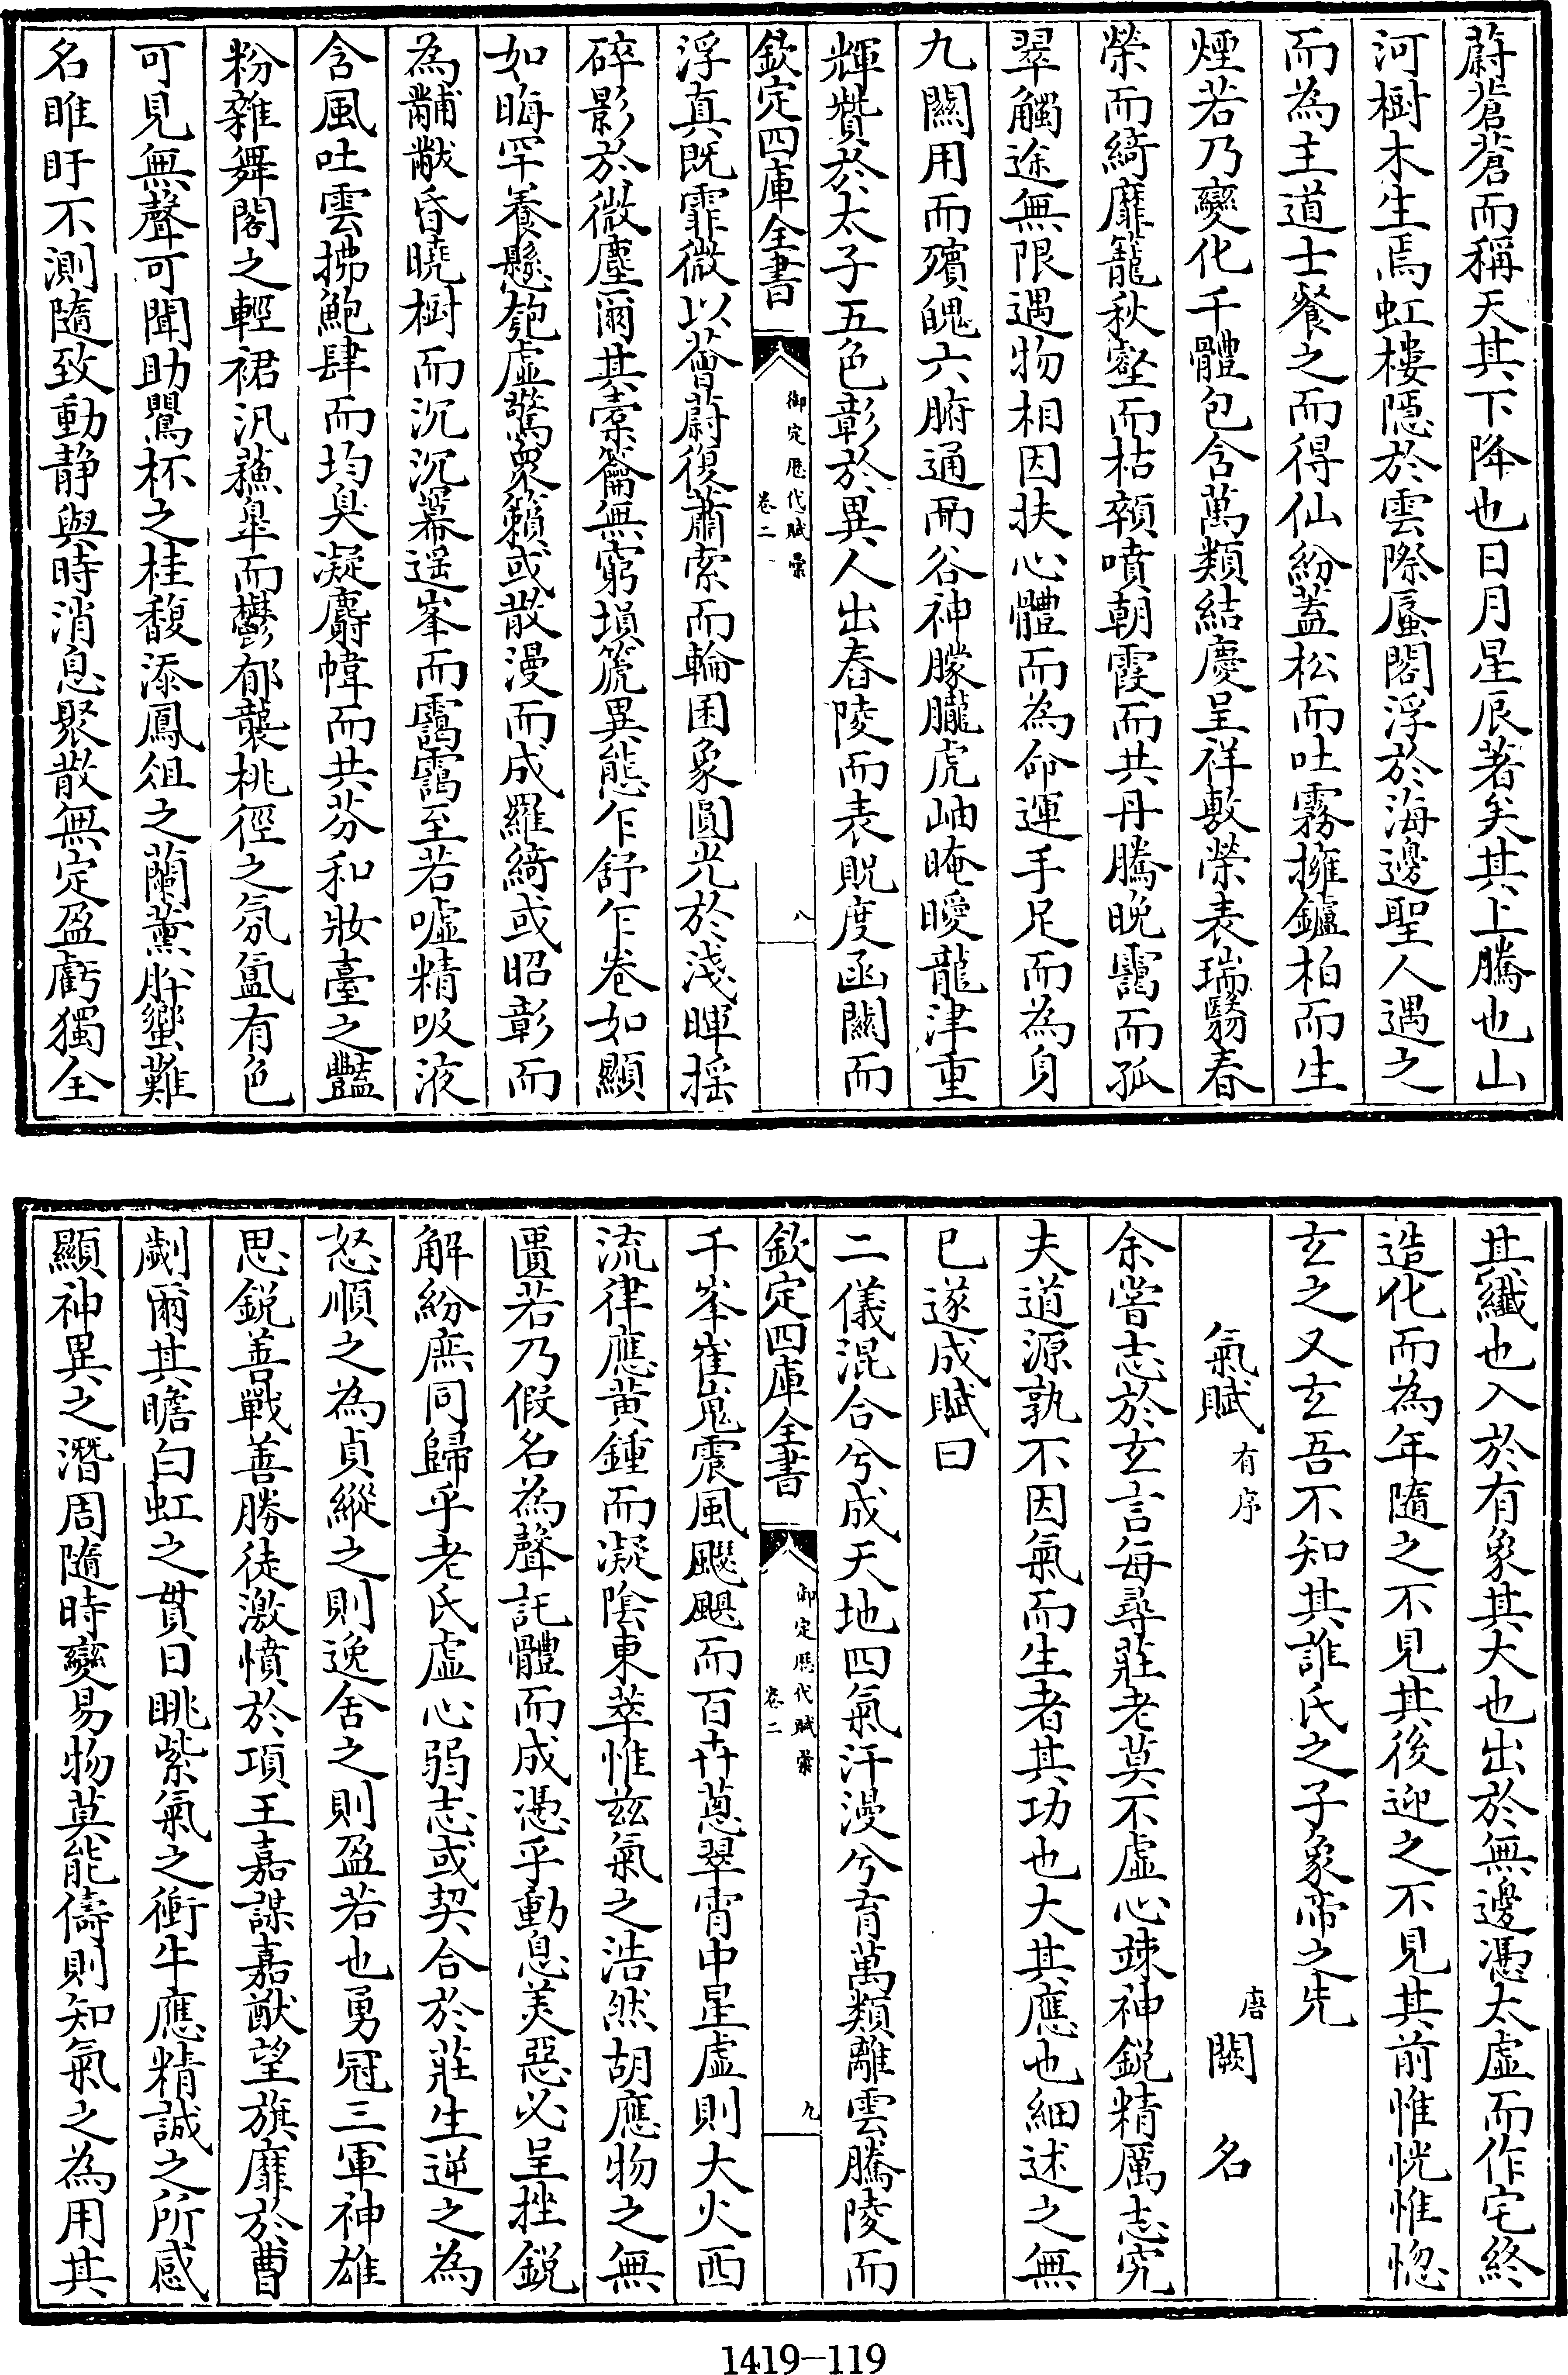 蔚蒼蒼而稱天其下降也日月星辰著矣其上騰也山
河樹木生焉虹樓隱於雲際蜃閣浮於海邊聖人遇之
而為主道士餐之而得仙紛蓋松而吐霧擁鑪柏而生
煙若乃變化千體包含萬類結慶呈祥敷榮表瑞翳春
榮而綺靡籠秋壑而枯顇噴朝霞而共丹騰晚靄而孤
翠觸途無限遇物相因扶心體而為命運手足而為身
九關用而殯魄六腑通而谷神朦朧虎岫晻曖龍津重
輝贊於太子五色彰於異人出舂陵而表貺度函關而
欽定四庫全書
御定歷代賦彙
卷二
八
浮真既霏微以薈蔚復蕭索而輪囷象圓光於淺暉揺
碎影於微塵爾其橐籥無窮塤箎異態乍舒乍卷如顯
如晦罕養懸匏虛驚衆籟或散漫而成羅綺或昭彰而
為黼黻昏曉樹而沉沉羃遥峯而靄靄至若噓精吸液
含風吐雲拂鮑肆而均臭凝麝幃而共芬和妝臺之豔
粉雜舞閣之輕裙汎蘓臯而鬱郁襲桃徑之氛氲有色
可見無聲可聞助鸎杯之桂馥添鳳俎之蘭薰肸蠁難
名睢盱不測隨致動静與時消息聚散無定盈虧獨全
其纖也入於有象其大也出於無邊憑太虛而作宅終
造化而為年隨之不見其後迎之不見其前惟恍惟惚
玄之又玄吾不知其誰氏之子象帝之先
氣賦 有序
唐 闕名
余嘗志於玄言每尋莊老莫不虛心竦神鋭精厲志究
夫道源孰不因氣而生者其功也大其應也細述之無
已遂成賦曰
二儀混合兮成天地四氣汗漫兮育萬類離雲騰陵而
欽定四庫全書
御定歷代賦彙
卷二
九
千峯崔嵬震風颸颸而百卉蔥翠宵中星虛則大火西
流律應黄鍾而凝陰東萃惟兹氣之浩然胡應物之無
匱若乃假名為聲託體而成憑乎動息美惡必呈挫鋭
解紛庶同歸乎老氏虛心弱志或契合於莊生逆之為
怒順之為貞縱之則逸舍之則盈若也勇冠三軍神雄
思鋭善戰善勝徒激憤於項王嘉謀嘉猷望旗靡於曹
劌爾其瞻白虹之貫日眺紫氣之衝牛應精誠之所感
顯神異之潛周隨時變易物莫能儔則知氣之為用其
1419-119